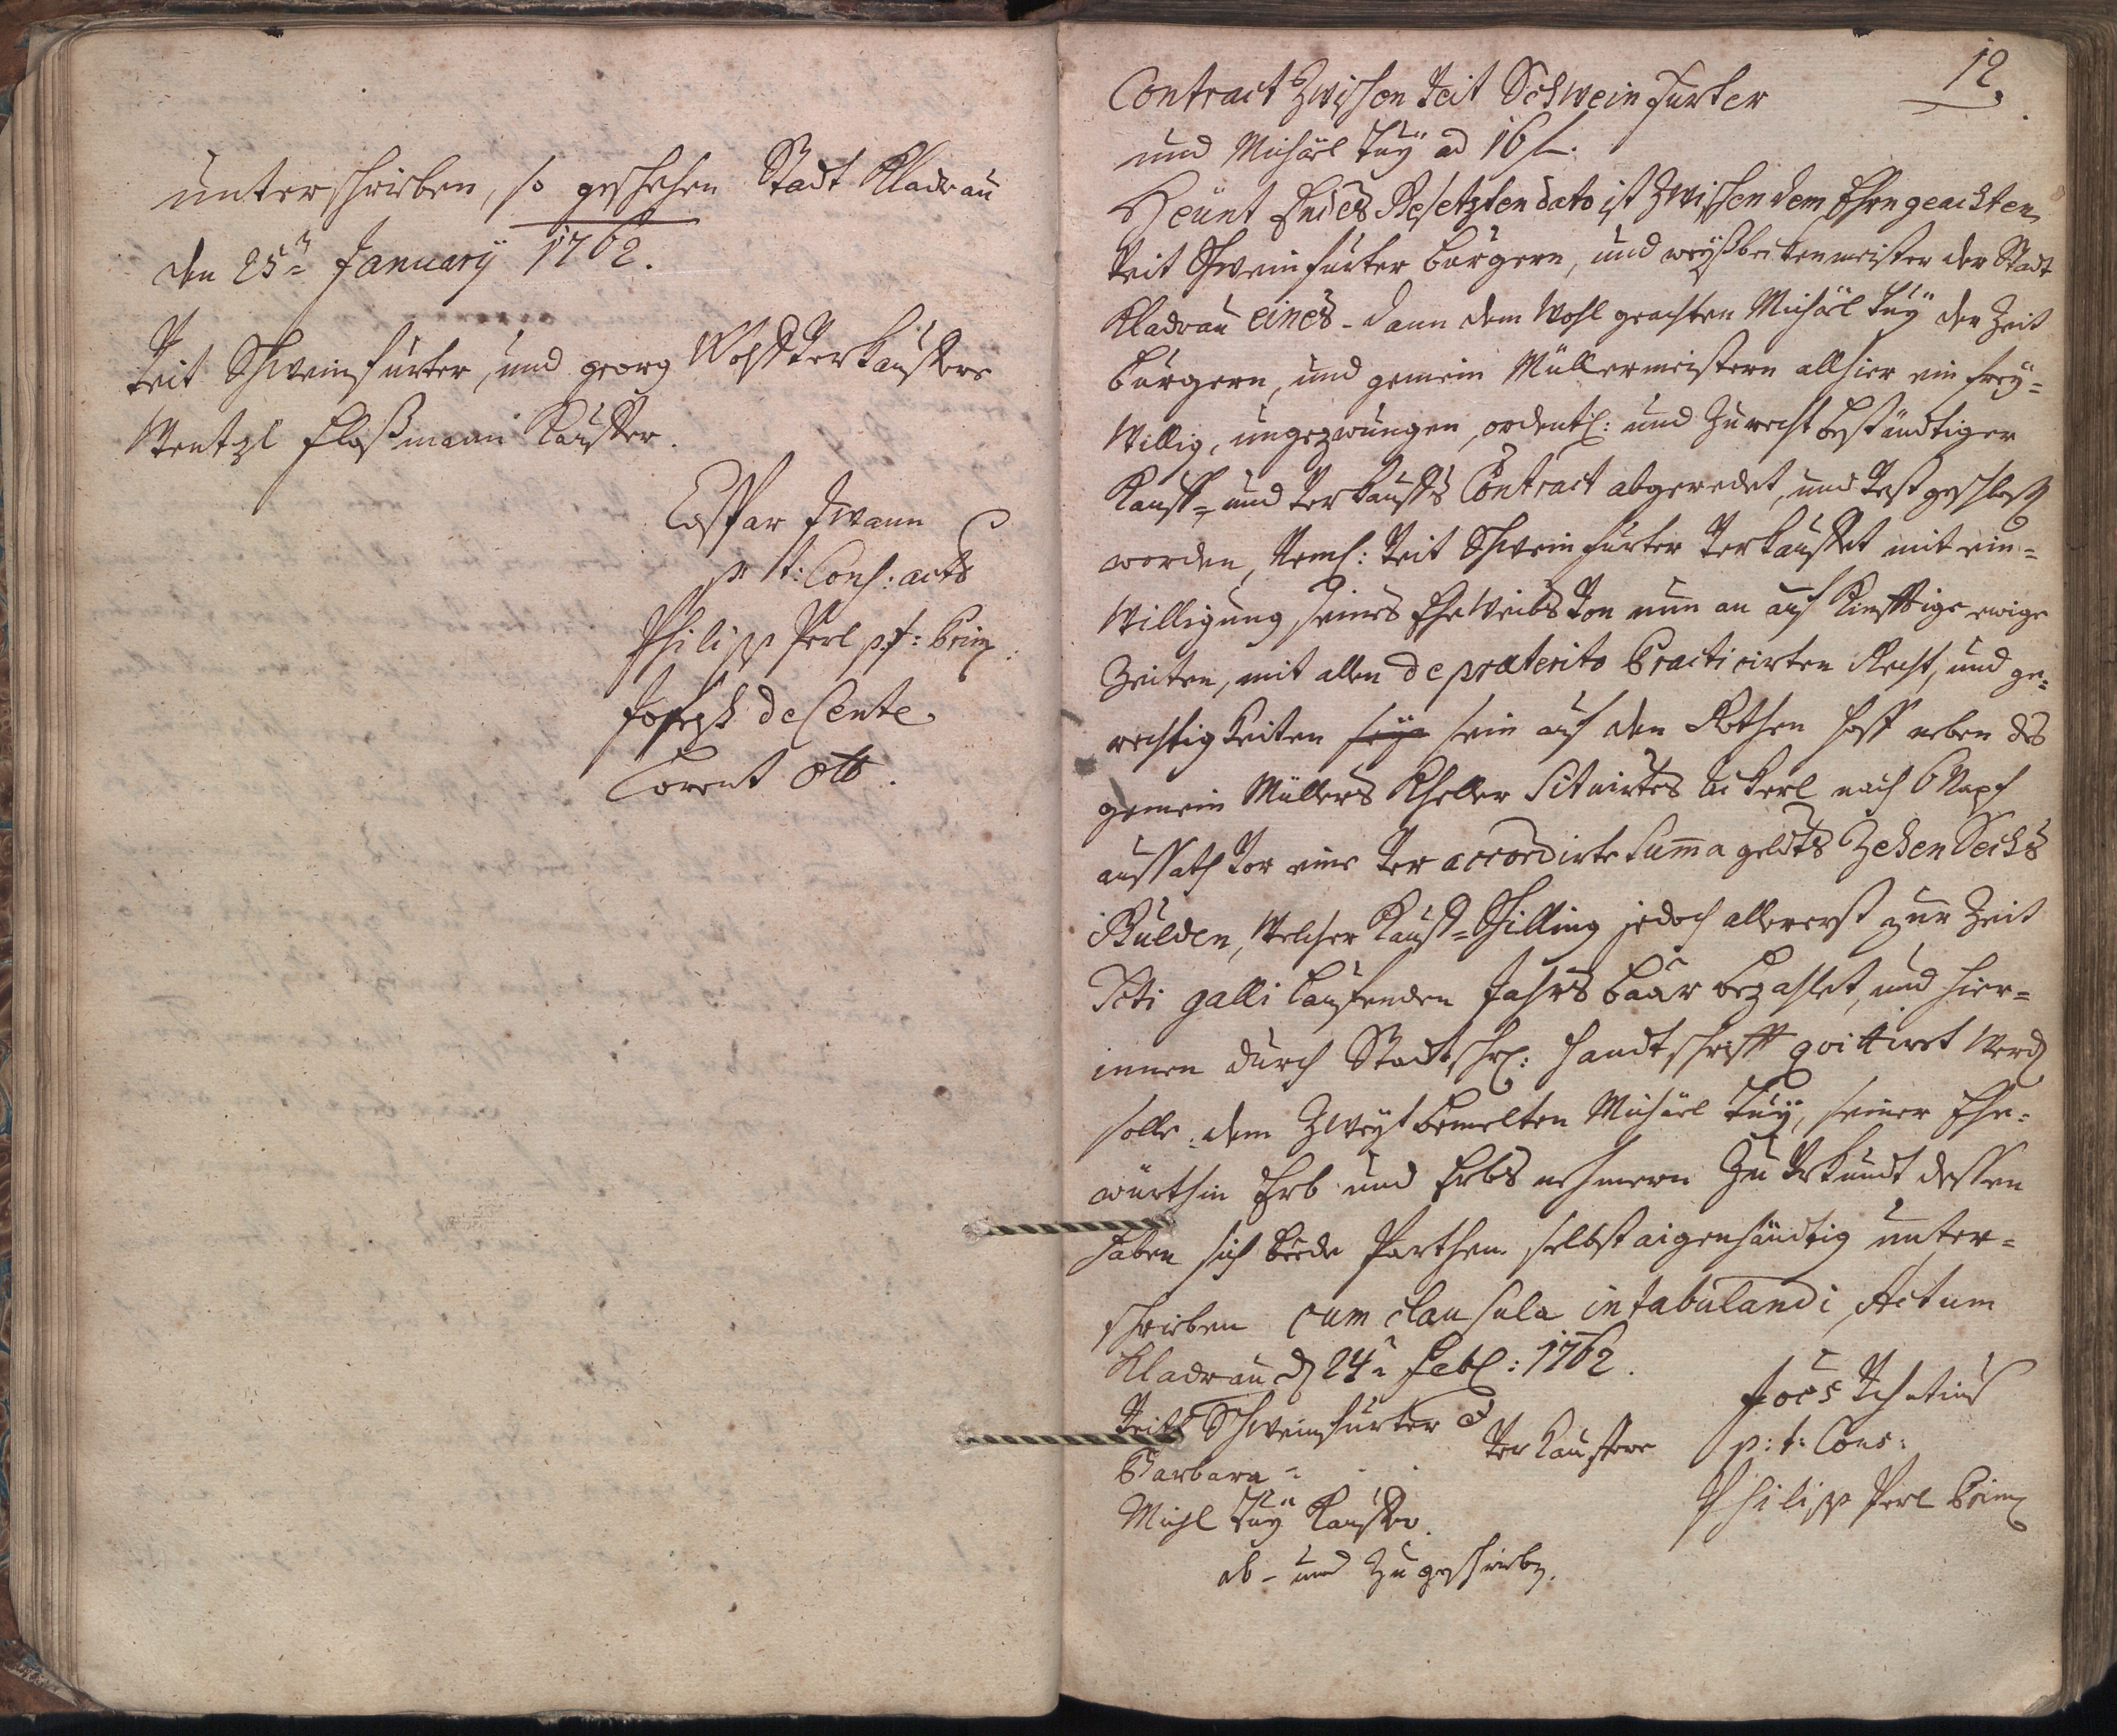 unterschrieben, so geschehen Stadt Kladrau
den 25ten January 1762.
Veit Schweinfurter, und georg Verkauffere
Wentzl Floßmann Kauffer.
Caspar Zwann
p: t: Cons: acts
Philipp Perl p: t: Prim:
Joseph de Cente
Lorent Ott.
12.
Contract Zwischen Veit Schweinfurter
und Michäel Tuÿ ad 16 f.
Heünt Endes Gesetzten dato ist Zwischen dem Ehrngeachten
Veit Schweinfurter bürgern, und weÿßbeckenmeister der Stadt
Kladrau eines - dann dem Wohl geachten Michäel Tuÿ der Zeit
bürgern, und gemein Müllermeistern allhier ein freÿ=
Willig, ungezwungen, ordentl: und Zu recht beständtiger
Kauff= und Verkauffs Contract abgeredet, und Vest geschlossen
worden, Neml: Veit Schweinfurter Verkauffet mit ein=
Willigung seines Ehe Weibs Von nun an auf Künfftige ewige
Zeiten, mit allen de præterito Practicirten Recht, und ge=
rechtigkeiten sein auf den Rothen hoff neben des
gemein Müllers Kheller Situirtes äckerl nach 6 Napf
aussath Vor eine Veraccordirte Summa geldts Zehen Sechs
Gulden, Welcher Kauff=Schilling jedoch allererst zur Zeit
Scti galli Laufenden Jahrs baar bezahlet, und hier=
innen durch Stadtschr: handtschrifft qvittiret Werden
solle. dem Zweÿt bemelten Michäel Tuÿ, seiner Ehe=
würthin Erb und Erbs nehmern Zu Urkundt dessen
haben sich beede Parthen selbst aigenhändtig unter=
schrieben cum clausula intabulandi, Actum
Kladrau d 24ten Febr: 1762.
Veit Schweinfurter
Barbara
Verkauffere
Michl Tuÿ Kauffer.
ab- und Zugeschrieben.
Joes
p: t: Cons:
Philipp Perl Prim